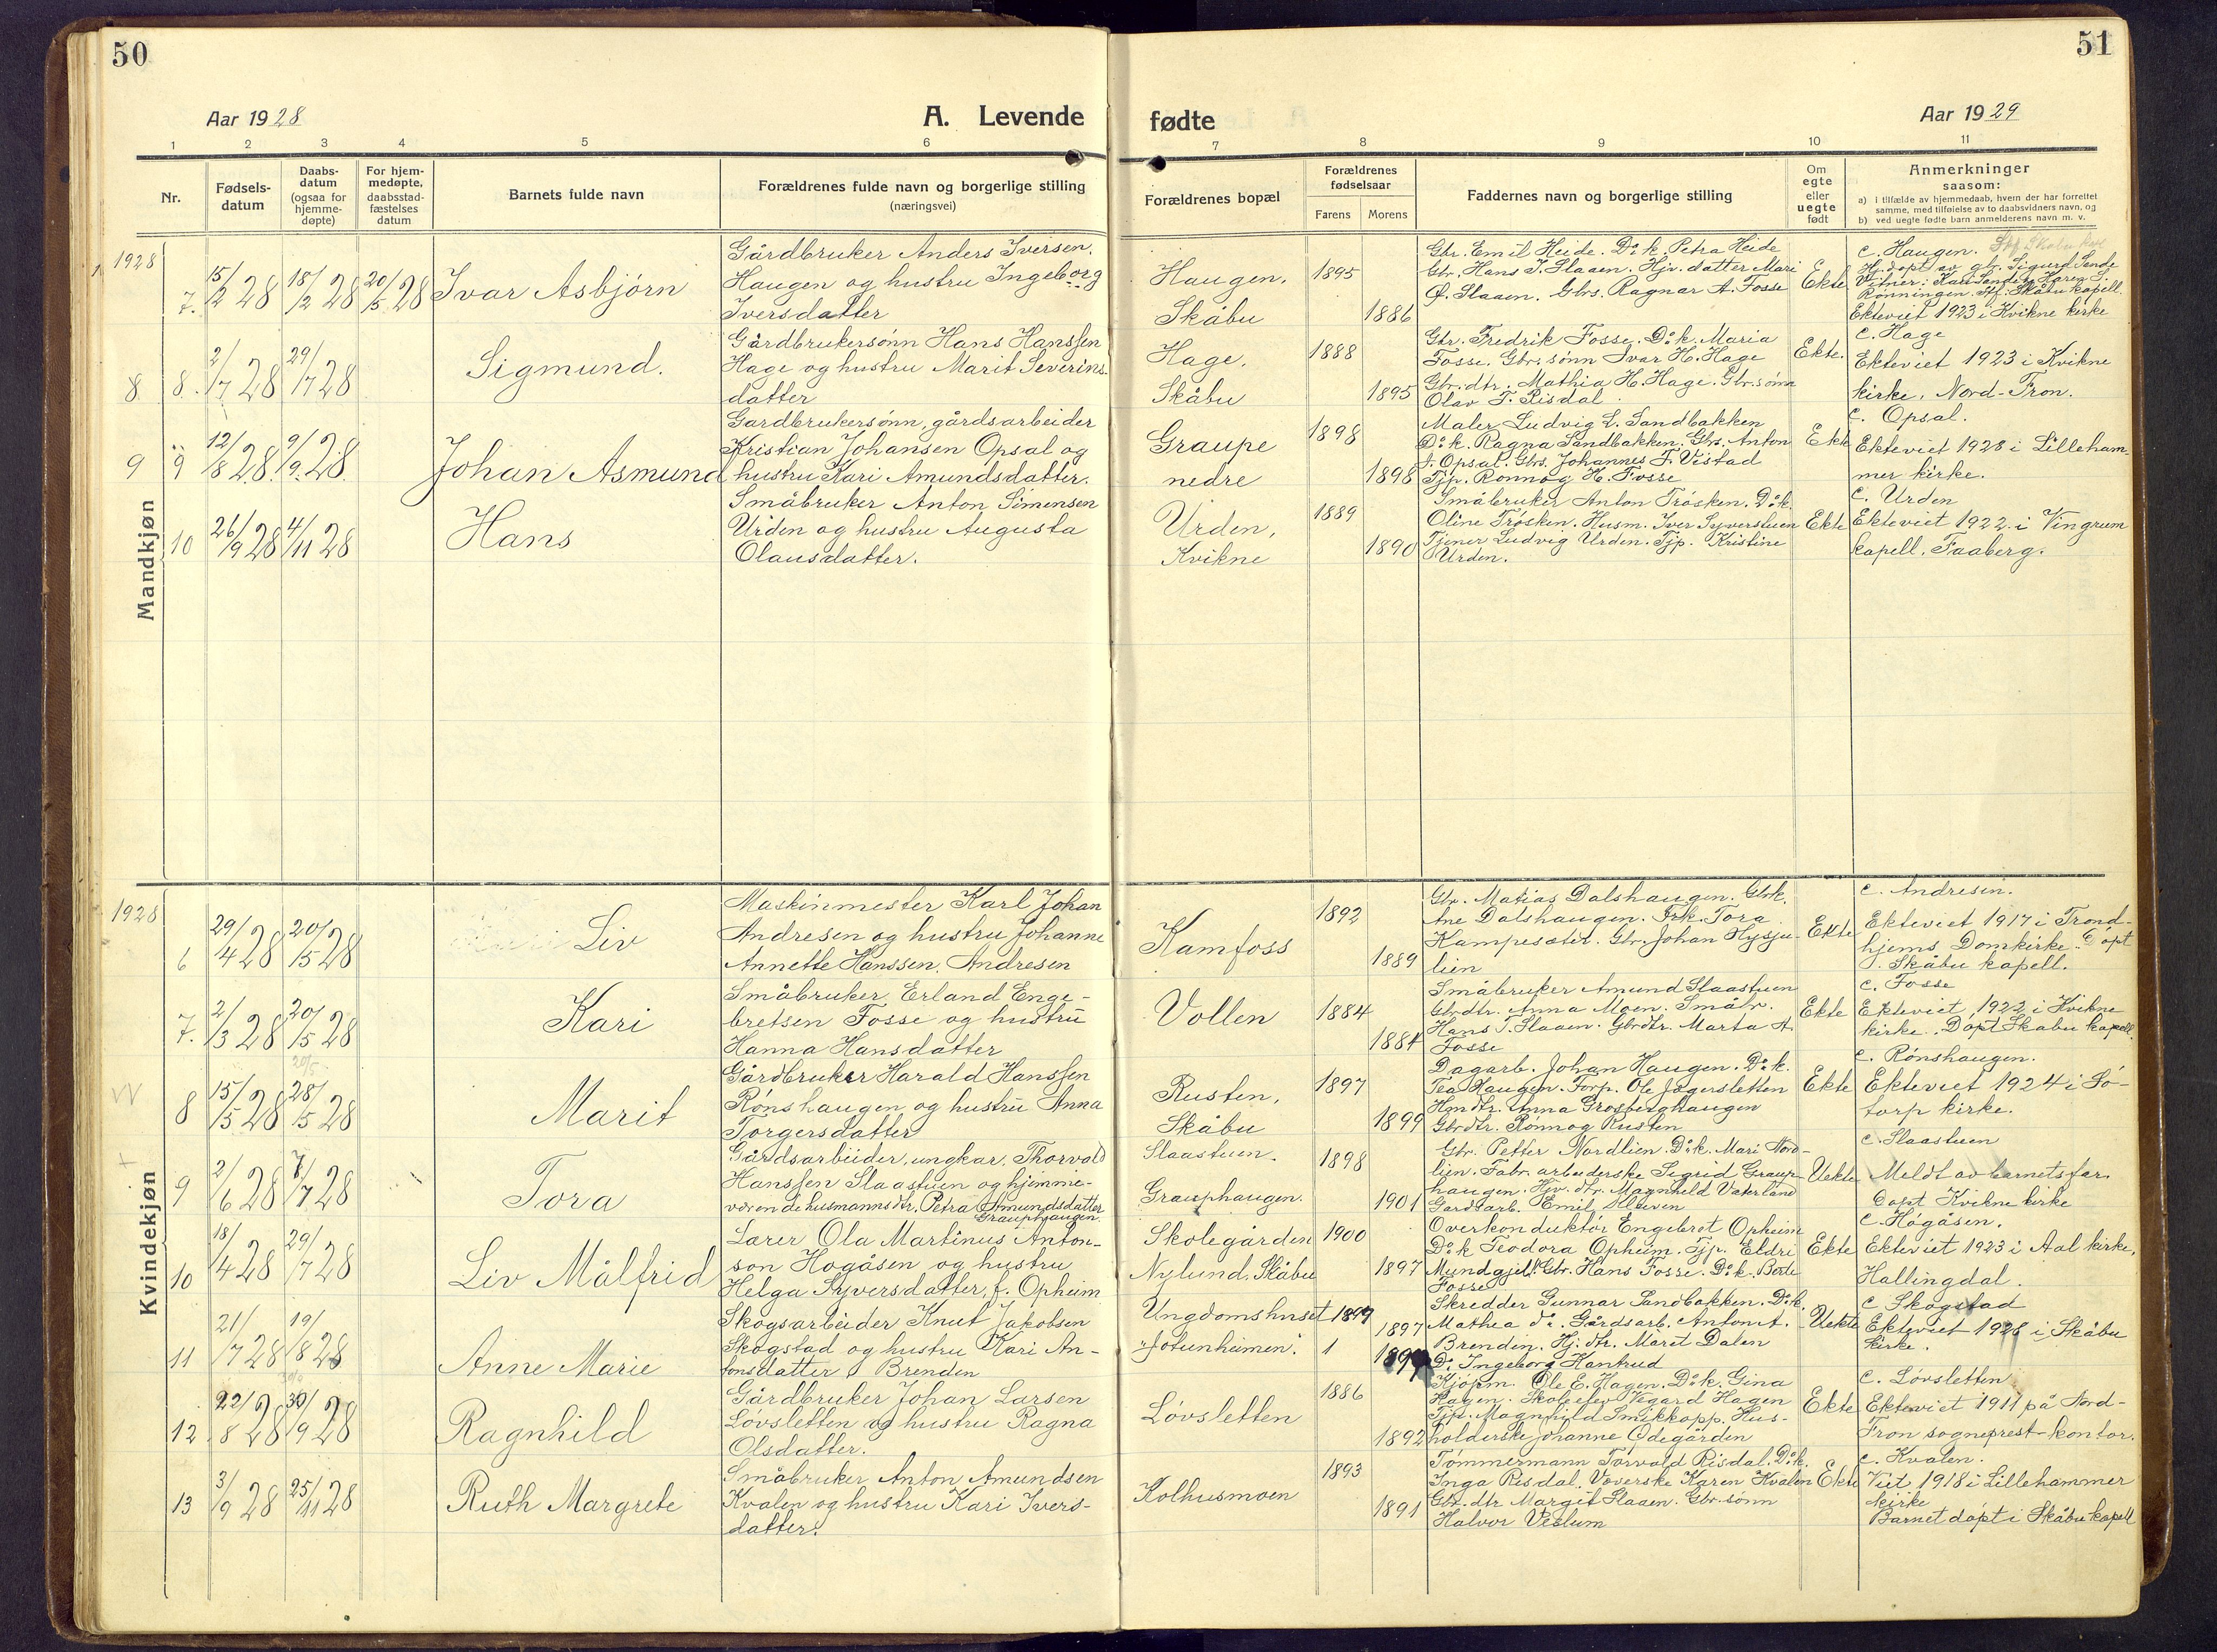 50
Aar 1928
A. Levende
1 2 3 4 5 6
Nr.
Fødsels-
datum
Daabs-
datum
(ogsaa for
hjemme-
døpte)
For hjem-
medøpte,
daabsstad-
fæstelses
datum
Barnets fulde navn
Forældrenes fulde navn og borgerlige stilling
(næringsvei)
Mandkjøn
1928
7. 15/2 28 18/2 28 20/5 28 Ivar Asbjørn
Gårdbruker Anders Iversen
Haugen og hustru Ingeborg
Iversdatter
8 8. 2/7 28 29/7 28 Sigmund.
Gårdbrukersønn Hans Hanssen
Hage og hustru Marit Severins-
datter
9 9 12/8 28. 9/9. 28. Johan Asmund
Gardbrukersønn, gårdsarbeider
Kristian Johansen Opsal og
hustru Kari Amundsdatter.
10 26/9 28 4/11 28 Hans
Småbruker Anton Simensen
Urden og hustru Augusta
Olausdatter.
Kvindekjøn
1928
6 29/4 28 20/5 28 Liv
Maskinmester Karl Johan
Andresen og hustru Johanne
Annette Hanssen. Andresen
7. 2/3 28 20/5 28 Kari
Småbruker Erland Enge-
bretsen Fosse og hustru
Hanna Hansdatter
20/5
8 15/5 28 28/5 28 Marit
Gårdbruker Harald Hanssen
Rønshaugen og hustru Anna
Torgersdatter
9 2/6 28 7/7 28 Tora
Gårdsarbeider, ungkar, Thorvald
Hanssen Slaastuen og hjemme-
værende husmannsdtr. Petra Amundsdatter
Grauphaugen.
10 18/4 28 29/7 28 Liv Målfrid
Lærer Ola Martinus Anton-
son Hogåsen og hustru
Helga Syversdatter, f. Opheim
11 21/7 28 19/8 28 Anne Marie
Skogsarbeider Knut Jakobsen
Skogstad og hustru Kari An-
tonsdatter Brenden
12 22/8 28 30/9 28 Ragnhild
Gårdbruker Johan Larsen
Løvsletten og hustru Ragna
Olsdatter.
13 3/9 28 25/11 28 Ruth Margrete
Småbruker Anton Amundsen
Kvalen og hustru Kari Ivers-
datter.
51
fødte
Aar 1929
7 8 9 10 11
Forældrenes bopæl
Forældrenes
fødselsaar
Farens Morens
Faddernes navn og borgerlige stilling
Om
egte
eller
uegte
født
Anmerkninger
saasom:
a) i tilfælde av hjemmedaab, hvem der har forrettet
samme, med tilføielse av to daabsvidners navn, og
b) ved uegte fødte barn anmelderens navn m. v.
Haugen,
Skåbu
1895
1886
Gbr. Emil Heide. Do k. Petra Heide
Gbr. Hans J. Slaaen. Hjv. datter Mari
O. Slaaen. Gbrs. Ragnar A. Fosse
Ekte
C. Haugen.
Hj. døpt av gbr. Sigurd Sende
Vitner: Kari Sende, Karen S.
Rønningen. Stf. Skåbu kapell.
Ekteviet 1923 i Kvikne kirke
Hage,
Skåbu
1888
1895
Gbr. Fredrik Fosse. Do k. Maria
Fosse. Gbr. sønn Ivar H. Hage
Gbr. dtr. Mathia H. Hage. Gbr. sønn
Olav T. Risdal.
Ekte.
C. Hage
Ekteviet 1923 i Kvikne
kirke, Nord-Fron.
Graupe
nedre
1898
1898
Maler Ludvig L. Sandbakken
Do k. Ragna Sandbakken. Gbs. Anton
J. Opsal. Gbs. Johannes F. Vistad
Tjp. Rønnog H. Fosse
Ekte
C. Opsal.
Ekteviet 1928 i Lilleham-
mer kirke.
Urden,
Kvikne
1889
1890
Småbruker Anton Trøsken. Do k.
Oline Trøsken. Husm. Iver Syverstuen
Tjener Ludvig Urden. Tjp. Kristine
Urden.
Ekte
C. Urden
Ekteviet 1922 i Vingrum
kapell, Faaberg.
Kamfoss
1892
1889
Gbr. Matias Dalshaugen. Gbrk.
Ane Dalshaugen. Frk. Tora
Kampesæter. Gbr. Johan Hysju-
lien
Ekte
C. Andresen.
Ekteviet 1917 i Trond-
hjems Domkirke. Døpt
i. Skåbu kapell.
Vollen
1884
1884
Småbruker Amund Slaastuen
Gbrdtr. Anna Moen. Småbr.
Hans T. Slaaen. Gbrdtr. Marta A.
Fosse
Ekte
C. Fosse
Ekteviet 1922 i Kvikne
kirke. Døpt Skåbu kapell.
Rusten,
Skåbu
1897
1899
Dagarb. Johan Haugen. Do k.
Tea Haugen. Forp. Ole Jægersletten
Hmdtr. Anna Grosberghaugen
Gbrdtr. Rønnog Rusten
Ekte
C. Rønshaugen.
Ekteviet 1924 i Sø-
dorp kirke.
Slaastuen.
Grauphaugen.
1898
1901
Gbr. Petter Nordlien. Do k. Mari Nord-
lien. Fabr. arbeiderske Sigrid Graup-
haugen. Hjv. dtr. Magnhild Vaterland
Gardsarb. Emil Sleeven
Uekte
C. Slaastuen
Meldt av barnets far.
Døpt Kvikne kirke
Skolegården
Nylund, Skåbu
1900
1897
Overkonduktør Engebret Opheim
Do k Teodora Opheim. Tjp. Eldri
Mundgjel. Gbr. Hans Fosse. Do k. Berte
Fosse
Ekte
C. Høgåsen.
Ekteviet 1923 i Aal kirke,
Hallingdal.
Ungdomshuset
"Jotunheimen".
1897
Skredder Gunnar Sandbakken. Do k.
Mathea do. Gårdsarb. Anton A.
Brenden. Hj. dtr. Marit Dalen
Do. Ingeborg Hantrud
Uekte
C Skogstad
Ekteviet 1928 i Skåbu
kirke.
Løvsletten
1886
1892
Kjøpm. Ole E. Hagen. Do k. Gina
Hagen. Skoleelev Vegard Hagen
Tjp. Magnhild Smikkopp. Hus-
holderske Johanne Ødegården
Ekte
C. Løvsletten
Ekteviet 1911 på Nord-
Fron sogneprest-kontor.
Kolhusmoen
1893
1891
Tømmermann Torvald Risdal. Do k.
Inga Risdal. Væverske Karen Kvalen
Gbr. dtr Margit Slaaen. Gbr. sønn
Halvor Veslum
Ekte
C. Kvalen.
Viet 1918 i Lillehammer
kirke
Barnet døpt i Skåbu kapell